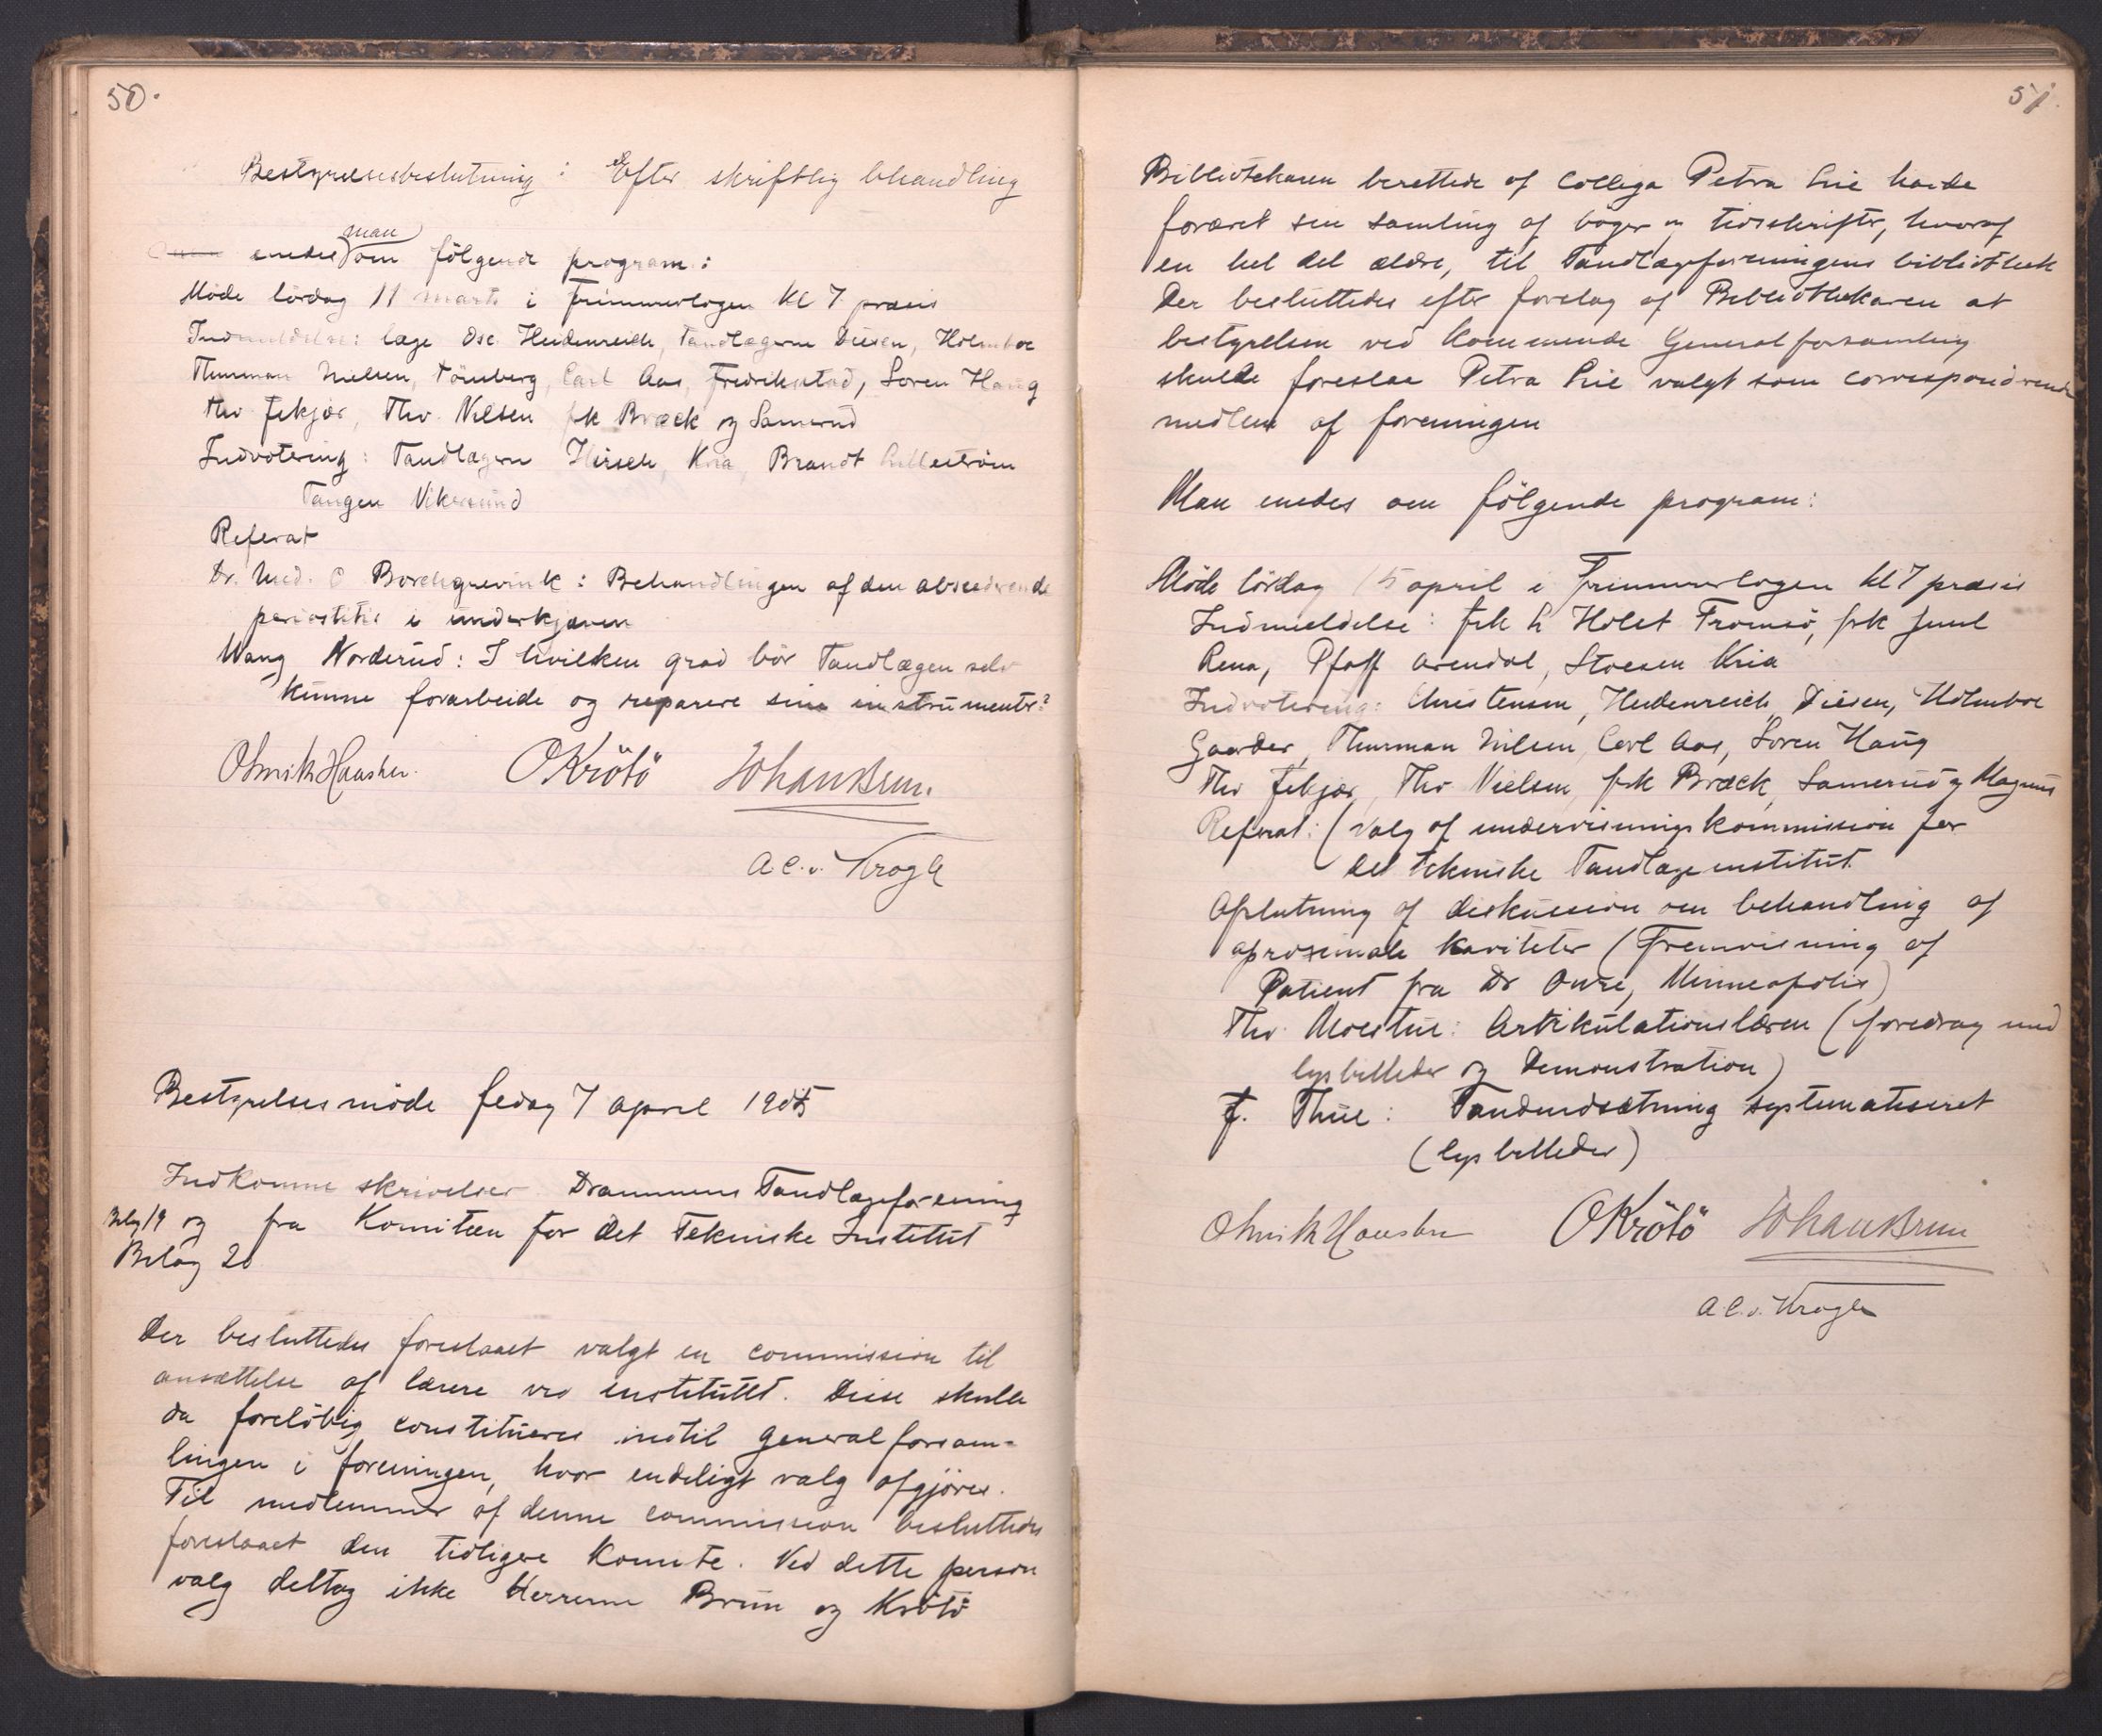 50.
Bestyrelsesbeslutning : Efter skriftlig behandling
enedes man om fölgende program :
Möde lördag 11 marts i Frimurerlogen kl 7 præcis
Indmeldelse: læge Osc. Heidenreich, Tandlægerne Diesen, Holmboe
Thurman Nielsen, Tönsberg, Carl Aas, Fredrikstad, Soren Haug
Thv. Fekjær, Thv. Nilsen frk Bræck og Samerud
Indvotering : Tandlægerne Hirsch, Kria, Brandt Lilleström
Tangen Vikersund
Referat
Dr. Med. O Borchgrevink : Behandlingen af den absederende
periostitis i underkjæven
Wang Norderud : I hvilken grad bör Tandlægen selv
kunne forarbeide og reparere sine instrumenter?
OKrötö Johan Brun.
A C. v. Krogh
Bestyrelsesmöde fredag 7 april 1905
Indkomne skrivelser Drammens Tandlægeforening
Bilag 19 og fra Komiteen for det Tekniske Institut
Bilag 20
Der besluttedes foreslaaet valgt en commission til
ansættelse af lærere ved instituttet. Disse skulle
da foreløbig constitueres indtil generalforsam-
lingen i foreningen, hvor endeligt valg afgjöres.
Til medlemmer af denne commission besluttedes
foreslaaet den tidligere Komite. Ved dette person
valg deltog ikke Herrerne Brun og Krötö
51.
Bibliotekaren berettede af Collega Petra Lie havde
foræret sin samling af böger og tidsskrifter, hvoraf
en hel del ældre, til Tandlægeforeningens bibliothek
Der besluttedes efter forslag af Bibliothekaren at
bestyrelsen ved kommende Generalforsamling
skulde foreslaa Petra Lie valgt som correspondrende
medlem af foreningen
Man enedes om fölgende program :
Möde lördag 15 april i Frimurerlogen kl 7 præcis
Indmeldelse : frk L Holst Tromsö, frk Juul
Rena, Pfaff Arendal, Stoesen Kria
Indvotering : Christensen, Heidenreich, Diesen, Holmboe
Gaarder, Thurman Nielsen, Carl Aas, Soren Haug
Thv Fekjær, Thv. Nielsen, frk Bræck, Samerud og Magnus
Referat : (Valg af undervisningskommission for
det tekniske Tandlægeinstitut.
Afslutning af diskussion om behandling af
aproximale kaviteter (Fremvisning af
Patient fra Dr Owre, Minneapolis)
Thv. Moestue : Artikulationslæren (foredrag med
lysbilleder og Demonstration)
F. Thue : Tandudsætning systematiseret
(lysbilleder)
OKrötö Johan Brun
A.C. v. Krogh